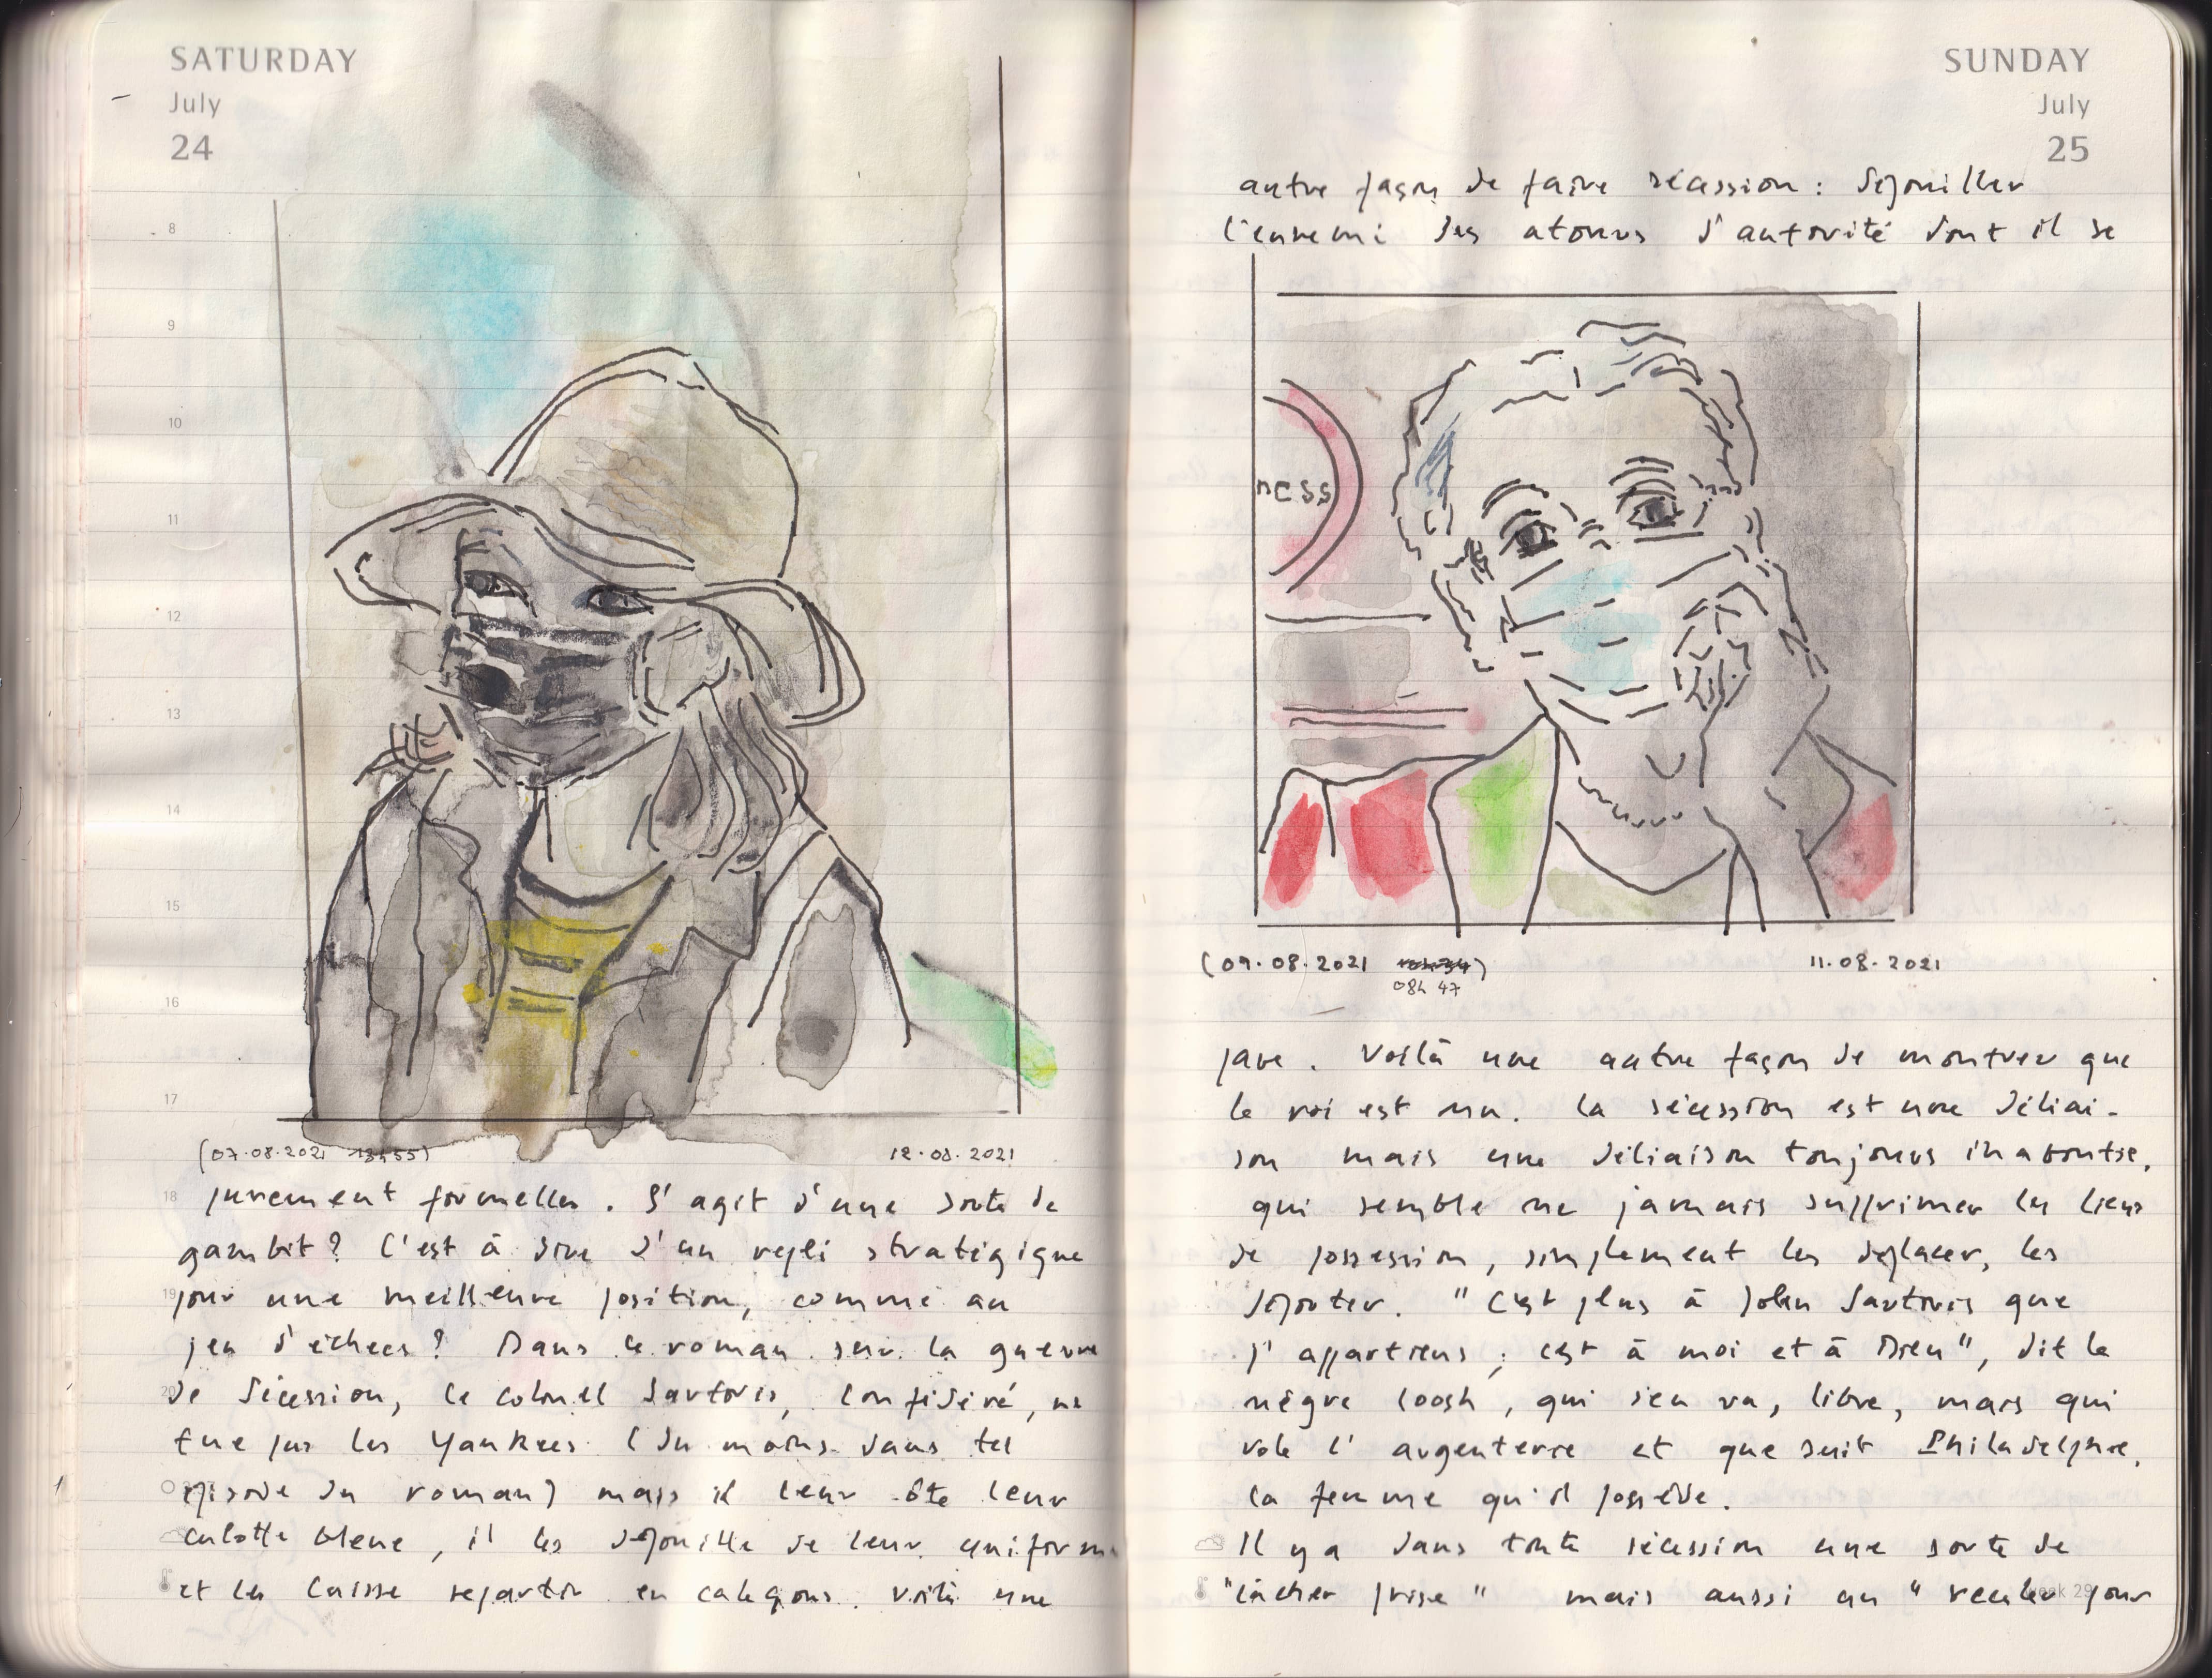 SATURDAY
July
24
8
9
10
11
12
13
14
15
16
17
(07.08.2021 13h55)
12.08.2021
18
purement formelles. S'agit d'une sorte de
gambit? C'est à dire d'un repli stratégique
19
pour une meilleure position, comme au
jeu d'échecs? Dans le roman sur la guerre
20
de Sécession, le colonel Sartoris, confédéré, ne
tue pas les Yankees (du moins dans tel
épisode du roman) mais il leur ôte leur
culotte bleue, il les dépouille de leur uniforme
et les laisse repartir en caleçons. Voilà une
SUNDAY
July
25
autre façon de faire sécession : dépouiller
l'ennemi des atours d'autorité dont il se
ness
(09.08.2021 08h 47)
11.08.2021
pare. Voilà une autre façon de montrer que
le roi est nu. La sécession est une déliai-
son mais une déliaison toujours inaboutie,
qui semble ne jamais supprimer les liens
de possession, simplement les déplacer, les
déporter. "C'est plus à John Sartoris que
j'appartiens ; c'est à moi et à Dieu", dit le
nègre Loosh, qui s'en va, libre, mais qui
vole l'argenterie et que suit Philadelphie,
la femme qu'il possède.
Il y a dans toute sécession une sorte de
"lâcher prise" mais aussi un "reculer pour
week 29